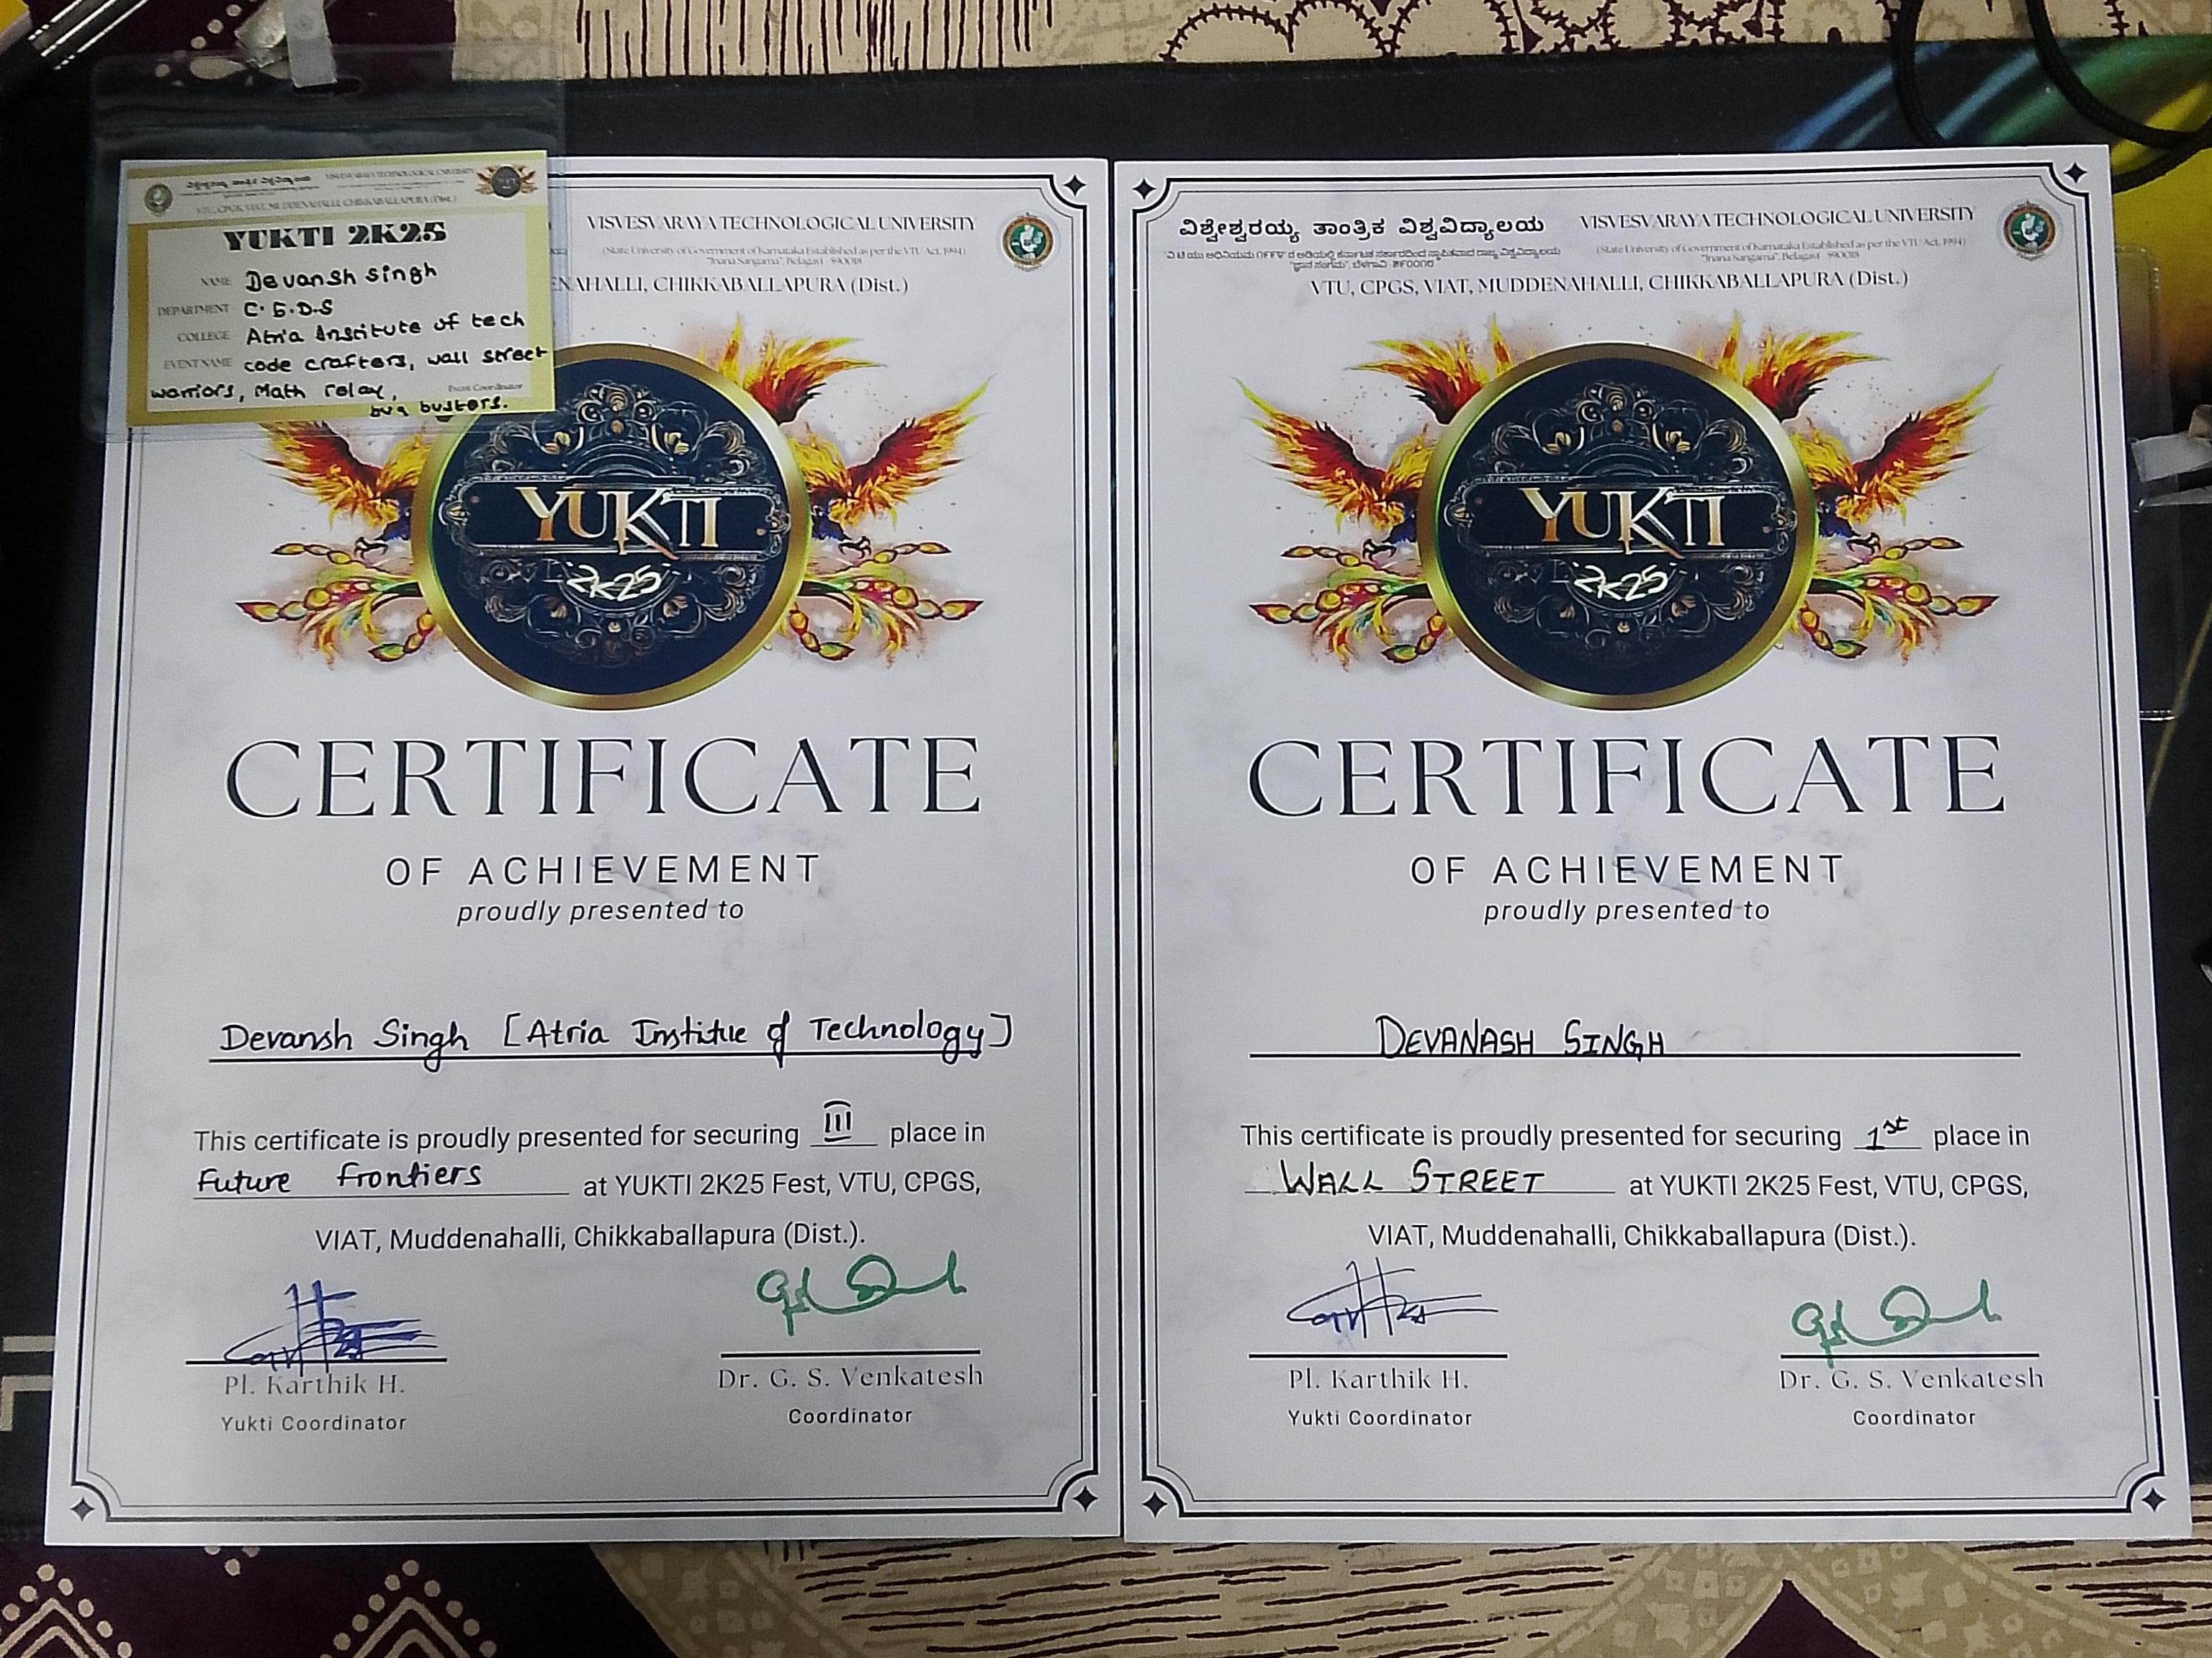 VISVESVARAYA TECHNOLOGICAL UNIVERSITY
VTU, CPGS, VIAT, MUDDENAHALLI, CHIKKABALLAPURA (Dist.)
YUKTI 2K25
NAME Devansh Singh
DEPARTMENT
COLLEGE Atria Institute of tech
EVENT NAME code crafters, wall street
warriors, Math relay,
Event Coordinator
bug busters.
VISVESVARAYA TECHNOLOGICAL UNIVERSITY
(State University of Government of Karnataka Established as per the VTU Act, 1994)
"Jnana Sangama", Belagavi - 590018
ENAHALLI, CHIKKABALLAPURA (Dist.)
YUKTI
2K25
CERTIFICATE
OF ACHIEVEMENT
proudly presented to
Devansh Singh [Atria Institue of Technology]
This certificate is proudly presented for securing III place in
Future Frontiers at YUKTI 2K25 Fest, VTU, CPGS,
VIAT, Muddenahalli, Chikkaballapura (Dist.).
Pl. Karthik H.
Yukti Coordinator
Dr. G. S. Venkatesh
Coordinator
ವಿಶ್ವೇಶ್ವರಯ್ಯ ತಾಂತ್ರಿಕ ವಿಶ್ವವಿದ್ಯಾಲಯ
ವಿ ಟಿ ಯು ಅಧಿನಿಯಮ ೧೯೯೪ ರ ಅಡಿಯಲ್ಲಿ ಕರ್ನಾಟಕ ಸರ್ಕಾರದಿಂದ ಸ್ಥಾಪಿತವಾದ ರಾಜ್ಯ ವಿಶ್ವವಿದ್ಯಾಲಯ
"ಜ್ಞಾನ ಸಂಗಮ", ಬೆಳಗಾವಿ - ೫೯೦೦೧೮
VISVESVARAYA TECHNOLOGICAL UNIVERSITY
(State University of Government of Karnataka Established as per the VTU Act, 1994)
"Jnana Sangama", Belagavi - 590018
VTU, CPGS, VIAT, MUDDENAHALLI, CHIKKABALLAPURA (Dist.)
YUKTI
2K25
CERTIFICATE
OF ACHIEVEMENT
proudly presented to
DEVANASH SINGH
This certificate is proudly presented for securing 1st place in
WALL STREET at YUKTI 2K25 Fest, VTU, CPGS,
VIAT, Muddenahalli, Chikkaballapura (Dist.).
Pl. Karthik H.
Yukti Coordinator
Dr. G. S. Venkatesh
Coordinator